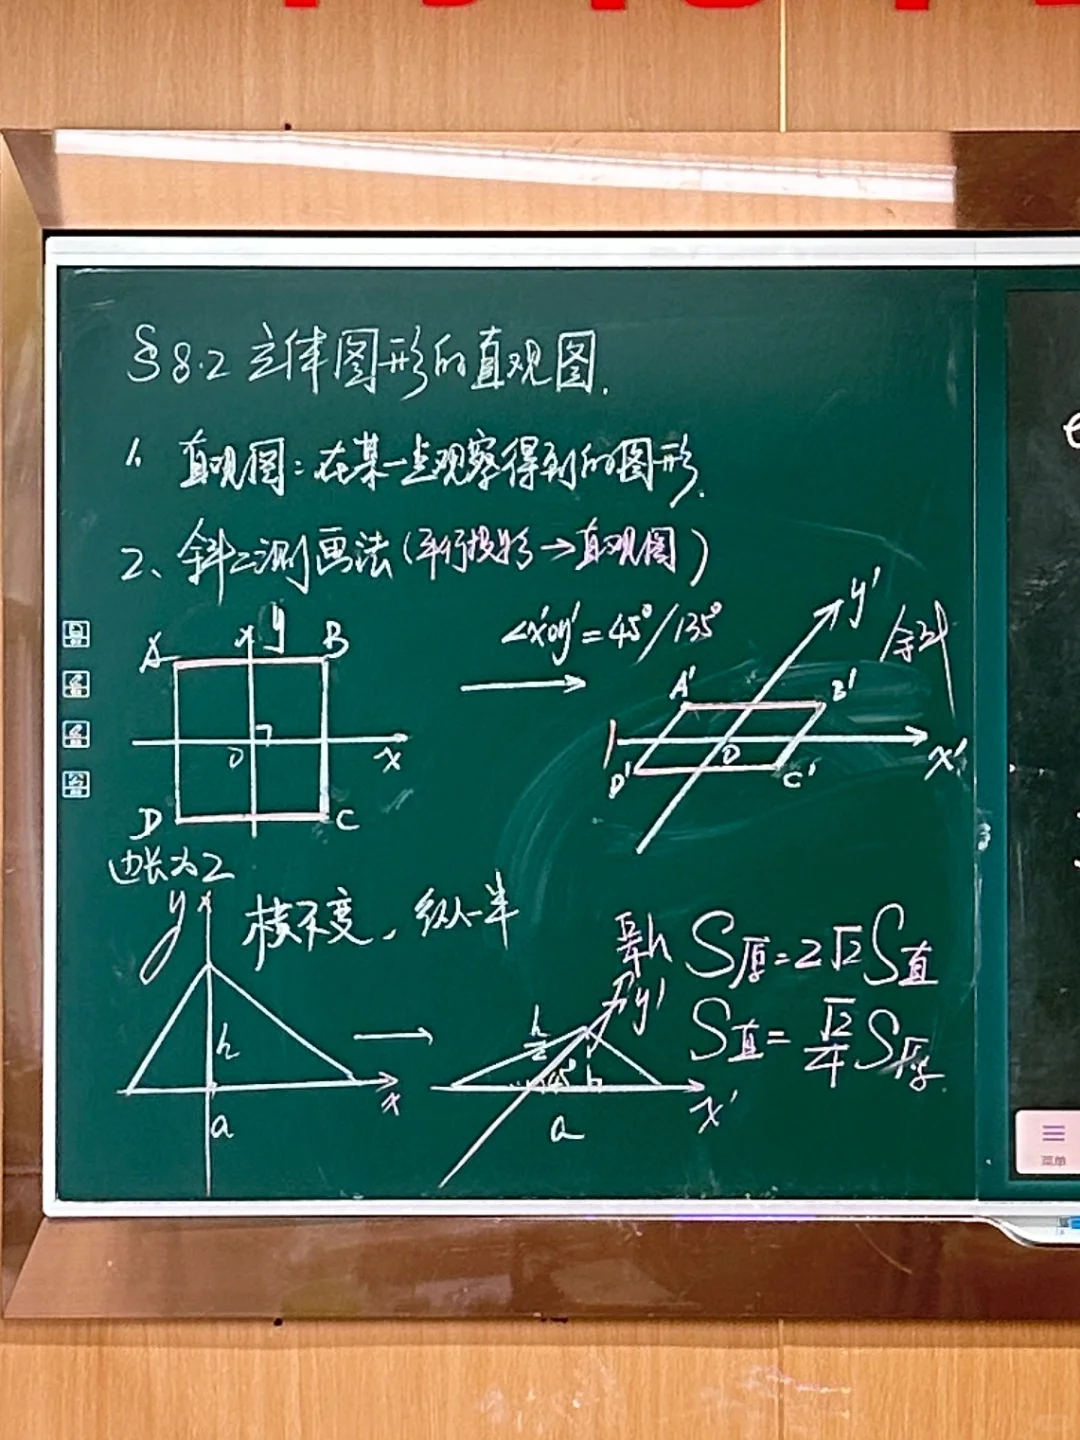 §8.2 立体图形的直观图.
1. 直观图：在某一点观察得到的图形.
2、斜二测画法(平行投影→直观图)
A y B
∠x'oy'=45°/135°
y' 斜
A' B'
O x
O x'
D' C'
D C
边长为2
y
横不变，纵一半
S原=2√2S直
y'
h
h/2
45°
S直=√2/4 S原
x
x'
a
a
菜单